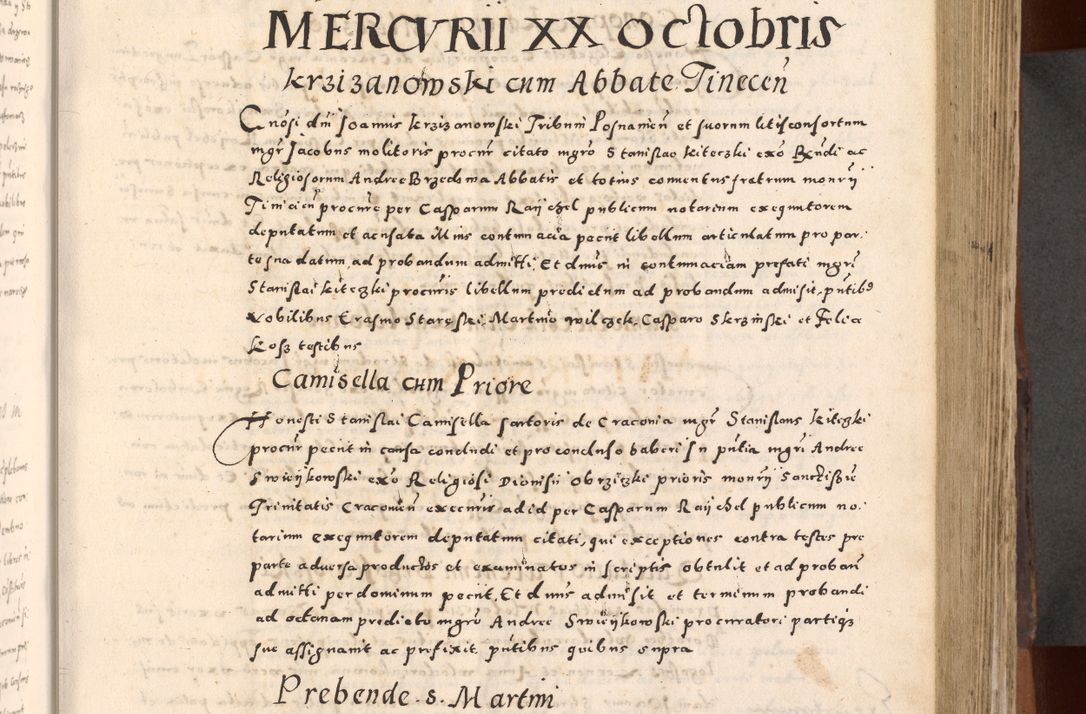 MERCVRII XX OCTObris
Krzizanowski cum Abbate Tinecen̄
Gnōsi dni Joannis Krzizanowski Tribuni Posnanien̄ et suorum litisconsortum
mgr̄ Jacobus molitoris procur̄ citato mgrō Stanislao Kiteczki exō Rn̄di ac
Religiosorum Andree Brzedowa Abbatis et totius conuentus fratrum monrȳ
Tinicien̄ procur̄e per Casparum Raÿchel publicum notarium exequutorem
deputatum et acusata illius contumacia petiit libellum articulatum pro par
te sua datum, ad probandum admitti, Et dnus in contumaciam prefati mgri
Stanislai Kiteczki procuris libellum predictum ad probandum admisit, pn̄tibs
Nobilibus Erasmo Staręski, Martino Wilczek, Casparo Skrzinski et Felici
Kosz testibus
Camisella cum Priore
Honesti Stanislai Camisella sartoris de Craconia mgr̄ Stanislaus Kiteczki
procur̄ petiit in causa concludi et pro concluso haberi In pn̄tia mgri Andree
Swieÿkowski exō Religiosi Dionisii Obrziczki prioris monrȳ Sanctissie
Trinitatis Cracouien̄ execuris ad id per Casparum Raÿchel publicum no.
tarium exequutorem deputatum citati, qui exceptiones contra testes pre
parte aduersa productos et examinatos in scriptis obtulit et ad proban̄
admitti per dominum petiit, Et dnus admisit et terminum probandi
ad octauam predicto mgrō Andree Swieÿkowski procuratori partiqz
sue assignauit ac prefixit pn̄tibus quibus supra
Prebende .S. Martini